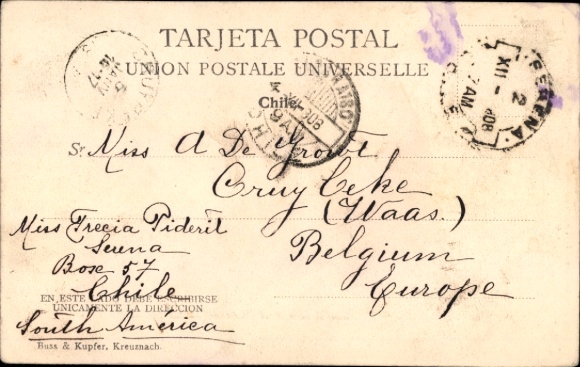 TARJETA POSTAL
UNION POSTALE UNIVERSELLE
Chile
SERENA
2
XII
7AM
Sr Miss A De Groot
Cruy beke
(Waas.)
Belgium
Europe
Miss Trecia Piderit
Serena
Box 57
Chile
EN ESTE LADO DEBE ESCRIBIRSE
UNICAMENTE LA DIRECCION
South América
Buss & Kupfer, Kreuznach.